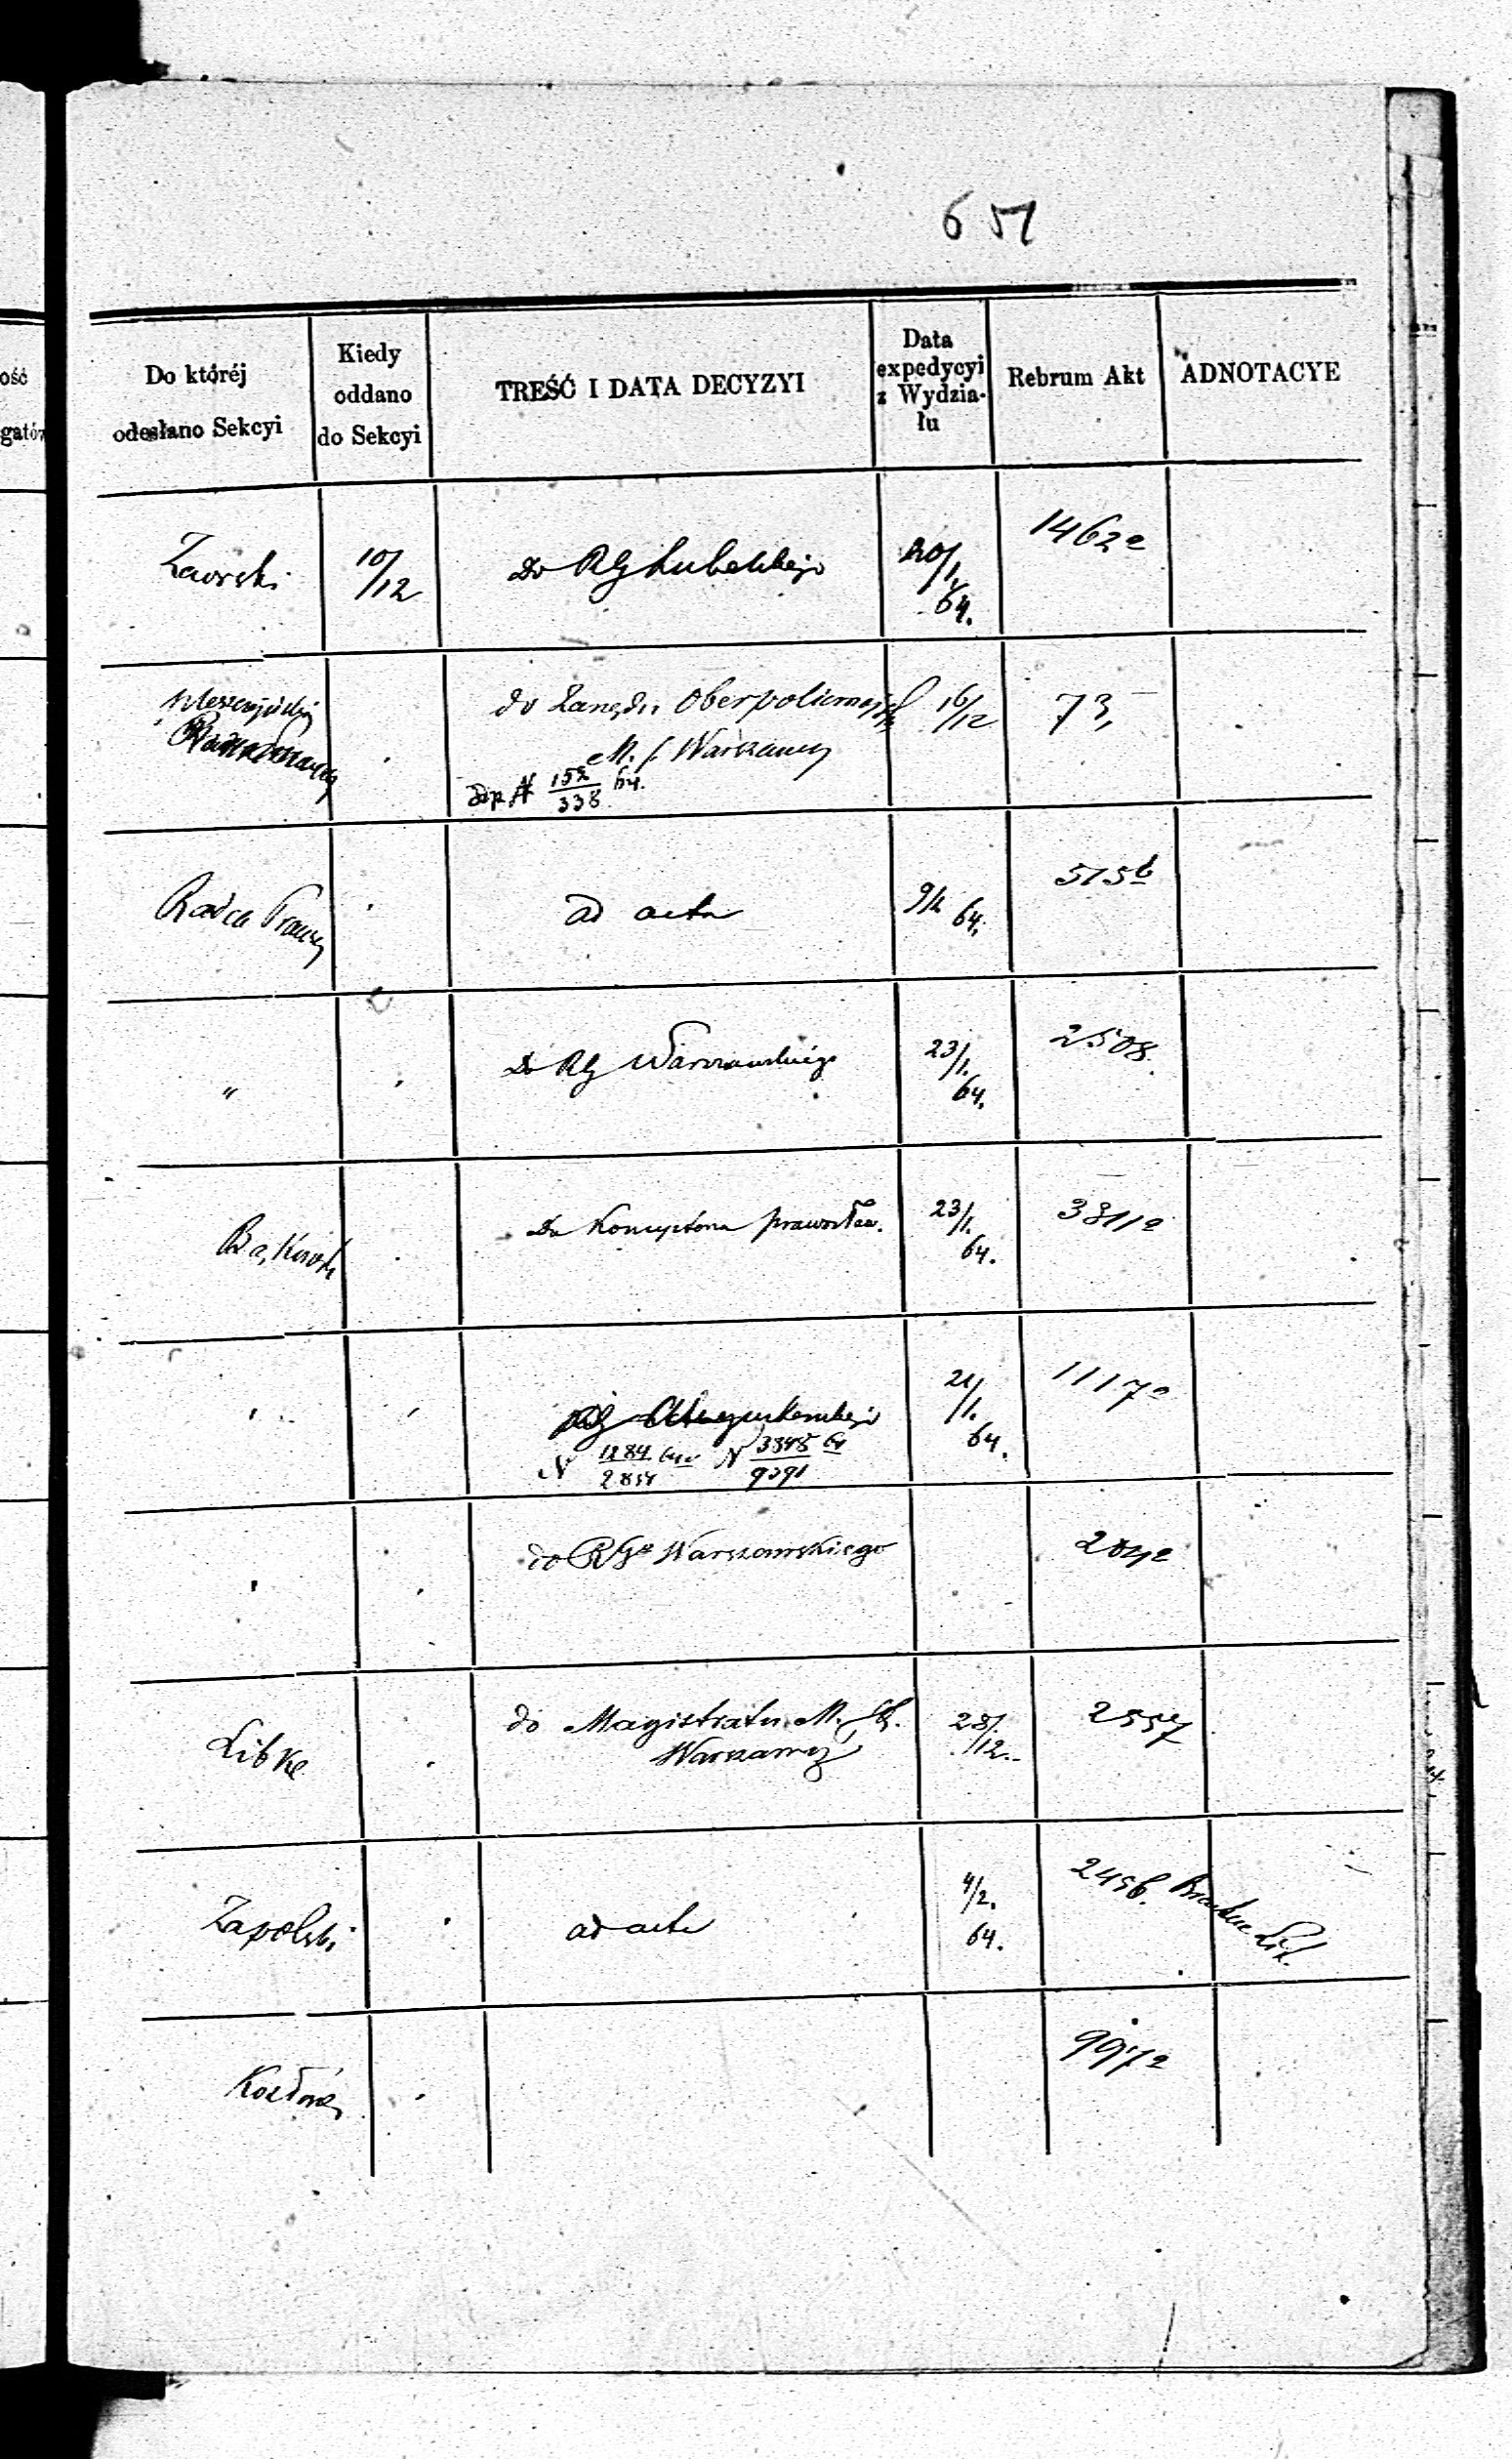 651
ość
gatów
Do któréj
odesłano Sekcyi
Kiedy
oddano
do Sekcyi
TREŚĆ I DATA DECYZYI
Data
expedycyi
z Wydzia-
łu
Rebrum Akt
ADNOTACYE
Zaorski
10/12
Do RG Lubelskiego
20/1
64.
1462a
do Zarządu Oberpolicmajstr
M. S. Warszawy
152/338 64.
16/12
73
Radca Prawny
ad acta
9/2 64.
515b
"
Do RG Warszawskiego
23/1.
64.
2508.
Do Konsystorza prawosław.
23/1.
64.
3811a
RG Augustowskiego
N 1284/2854 N 3345/9291
21/1.
64.
1117a
do RGo Warszawskiego
204a
Libke
do Magistratu M. S.
Warszawy
28/12.
2557
Zapolski
ad acta
4/2.
64.
2456.
Lit.
997a